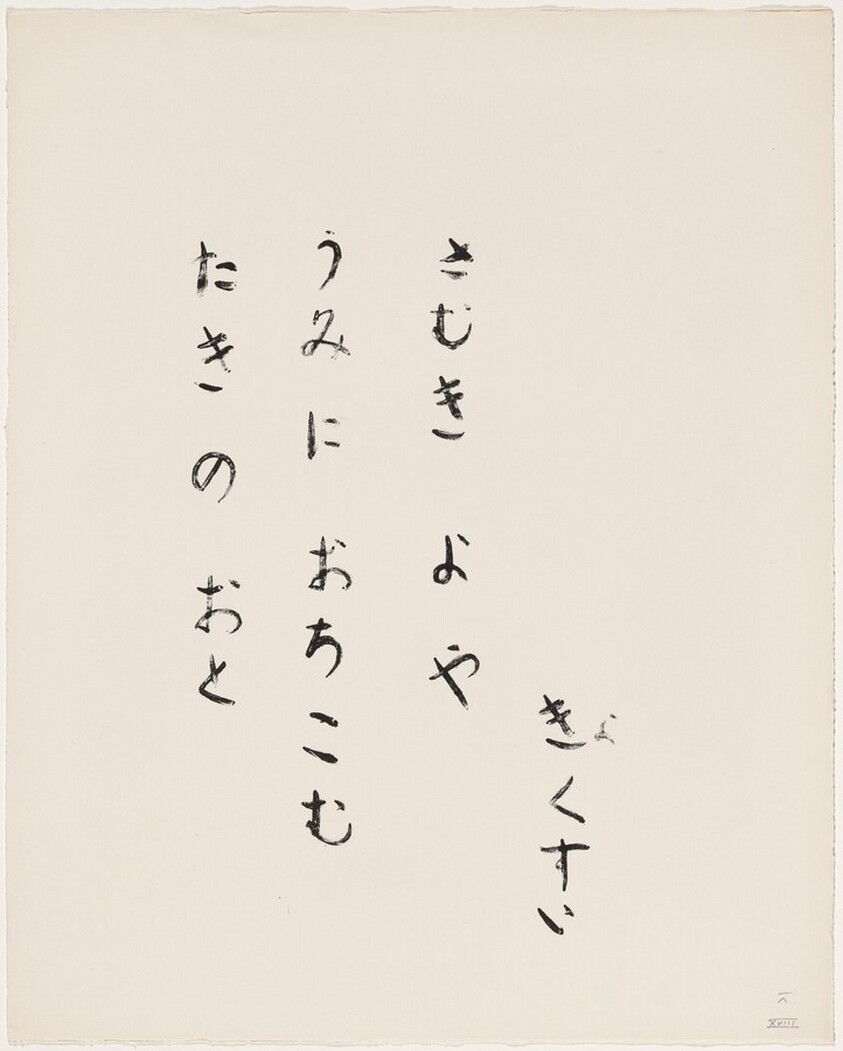 きょくすい
さむき よ や
うみに おちこむ
たきの おと
一八
XVIII